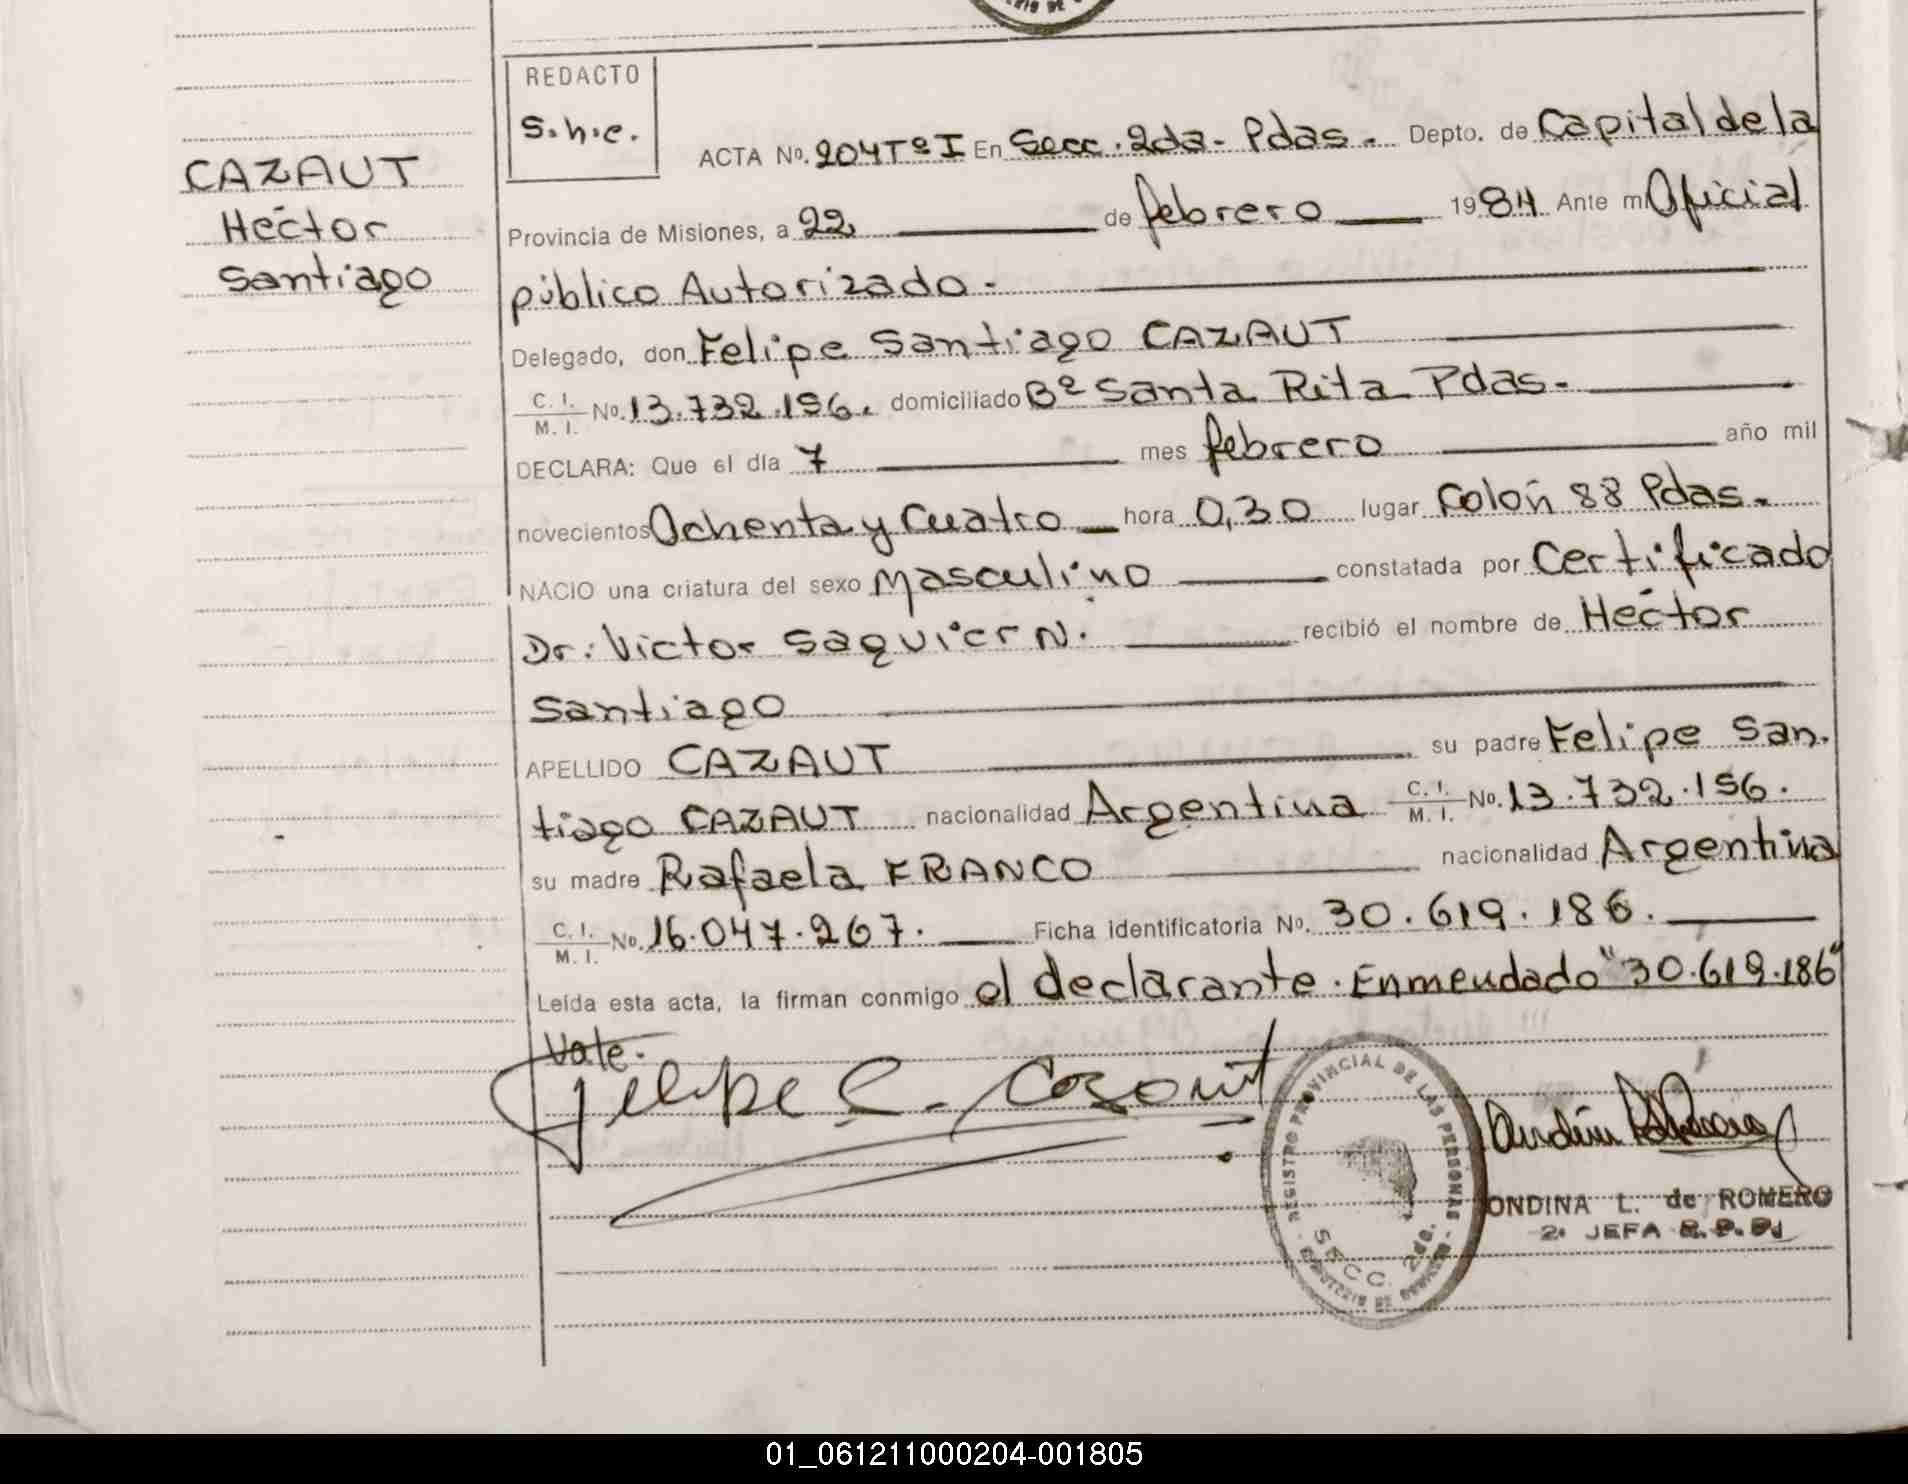 CAZAUT
Héctor
Santiago
REDACTO
S.h.c.
ACTA No. 204 Tº I En Secc. 2da - Pdas. Depto. de Capital de la
Provincia de Misiones, a 22 de febrero 1984 Ante mí Oficial
público Autorizado.
Delegado, don Felipe Santiago CAZAUT
C. I. M. I. No. 13.732.156. domiciliado Bº Santa Rita Pdas.
DECLARA: Que el día 7 mes febrero año mil
novecientos Ochenta y Cuatro hora 0,30 lugar Colón 88 Pdas.
NACIO una criatura del sexo Masculino constatada por Certificado
Dr. Victor Saquier N. recibió el nombre de Héctor
Santiago
APELLIDO CAZAUT su padre Felipe San.
tiago CAZAUT nacionalidad Argentina C. I. M. I. No. 13.732.156.
su madre Rafaela FRANCO nacionalidad Argentina
C. I. M. I. No. 16.047.267. Ficha identificatoria No. 30.619.186.
Leída esta acta, la firman conmigo el declarante. Enmendado "30.619.186"
Vale.
Felipe S. Cazaut
REGISTRO PROVINCIAL DE LAS PERSONAS
SECC. 2da.
ONDINA L. de ROMERO
2ª JEFA R.P.P.
01_061211000204-001805